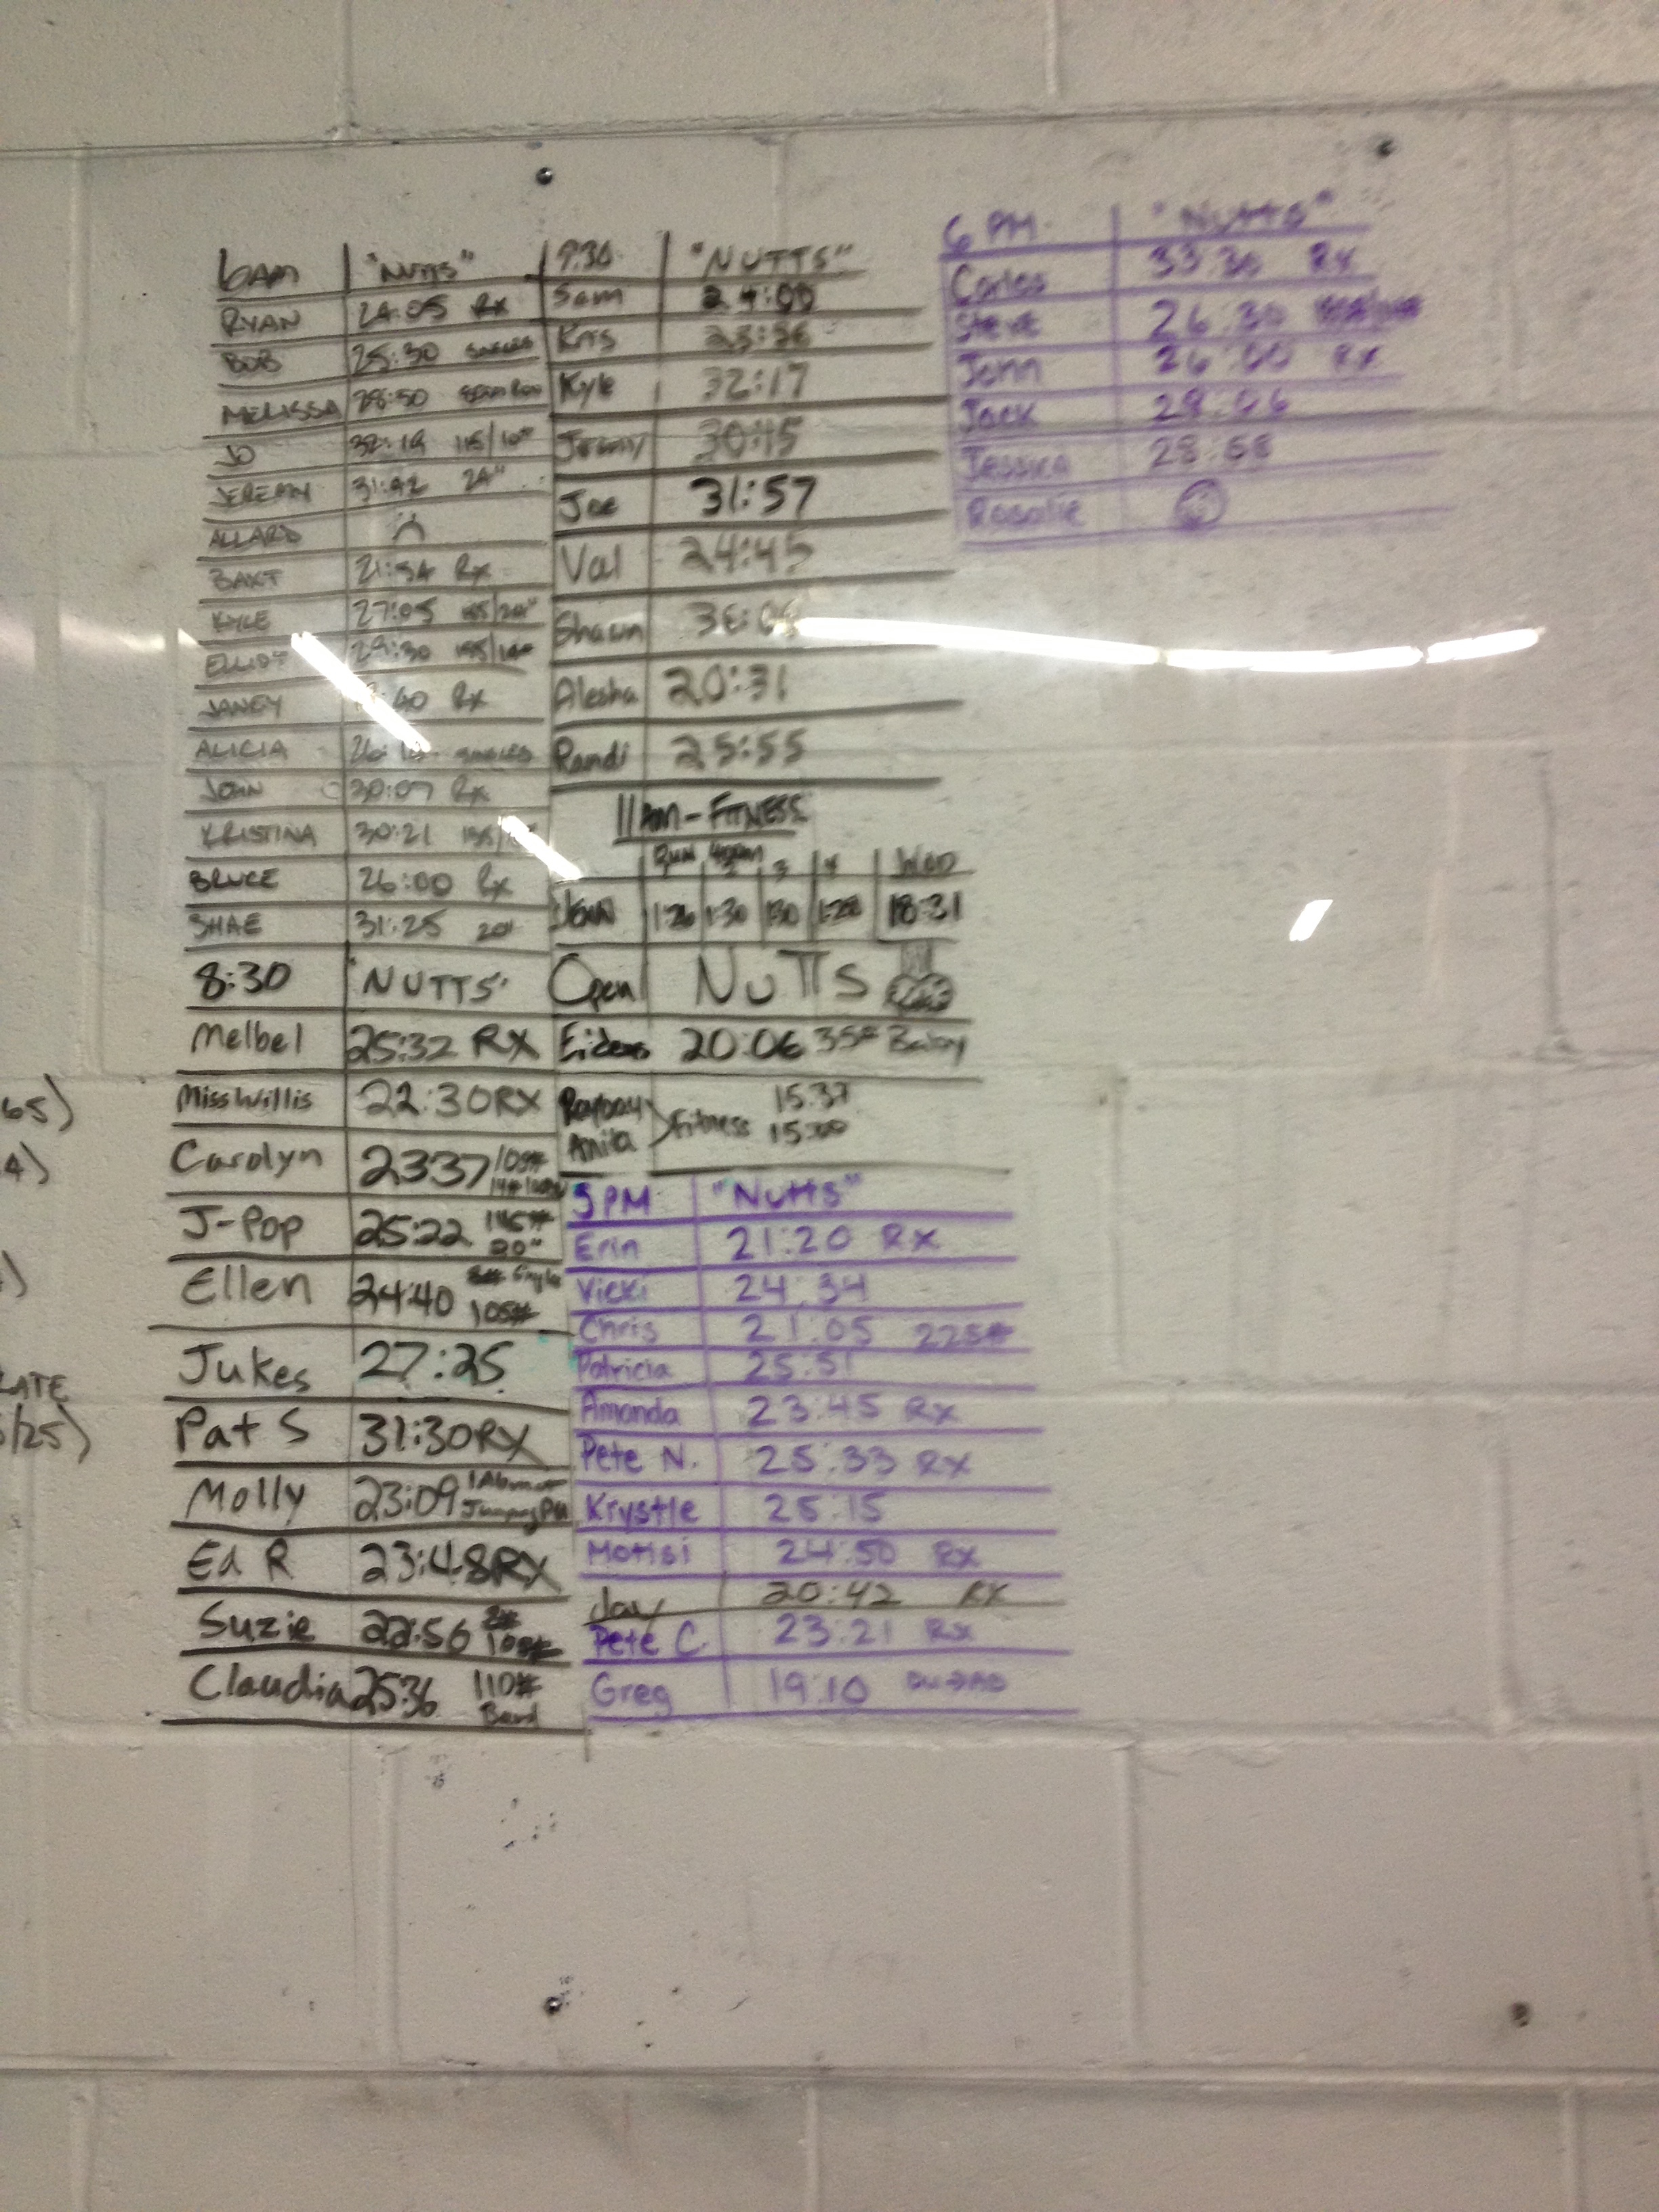 6AM "NUTTS"
RYAN 24:05 Rx
BOB 25:30 SINGLES
MELISSA 28:50
JO 32:19 115/10#
JEREMY 31:42 24"
ALLARD
BAXT 21:54 Rx
KYLE 27:05 185/24"
ELLIOT 29:30 185/14#
JANEY :40 Rx
ALICIA SINGLES
JOHN 30:07 Rx
KRISTINA 30:21
BRUCE 26:00 Rx
SHAE 31:25 20"
8:30 "NUTTS"
Melbel 25:32 RX
MissWillis 22:30 RX
Carolyn 23:37
J-Pop 25:22 145#
20"
Ellen 24:40 Singles
105#
Jukes 27:25
Pat S 31:30 RX
Molly 23:09 1 Abmat
Jumping PU
Ed R 23:48 RX
Suzie 22:56
Claudia 25:36 110#
Band
9:30 "NUTTS"
Sam 24:00
Kris
Kyle 32:17
Jeremy 30:45
Joe 31:57
Val 24:45
Shawn
Alesha 20:31
Randi 25:55
11AM-FITNESS
Run 400m WOD
2 3 4
JENN 1:26 1:30 1:30 1:28 18:31
Open NuTTs
20:06 35#
15:37
Anita Fitness 15:00
5PM "Nutts"
Erin 21:20 Rx
Vicki 24:34
Chris 21:05 225#
Patricia 25:51
Amanda 23:45 Rx
Pete N. 25:33 Rx
Krystle 25:15
Motisi 24:50 Rx
Jay 20:42 RX
Pete C. 23:21 Rx
Greg 19:10
6 PM "Nutts"
Carlos 33:30 Rx
Steve 26:30
John 26:00 Rx
Jack 29:06
Jessica 28:58
Rosalie
65)
4)
)
LATE
/25)